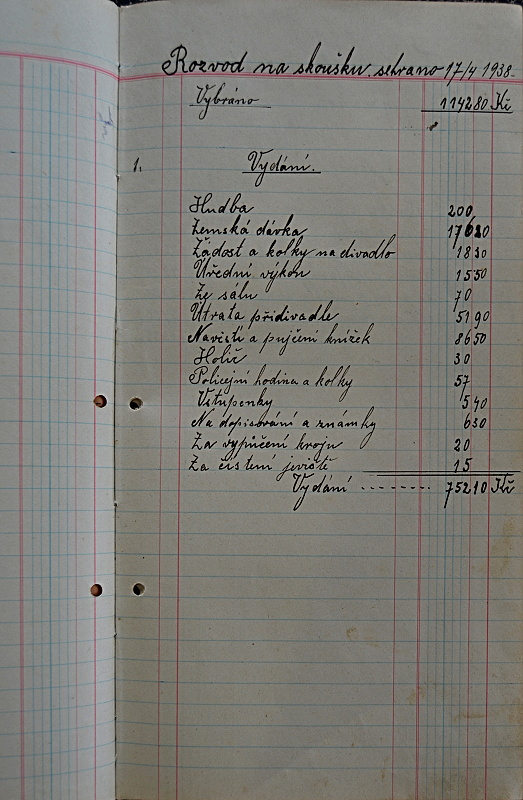 Rozvod na skoušku. sehrano 17/4 1938.
Vybráno 114280 Kč
1. Vydání.
Hudba 200
Zemská dávka 17610
Žádost a kolky na divadlo 1830
Úřední výkon 1550
Ze sálu 70
Útrata přidivadle 5190
Navistí a pujčení knížek 8650
Holič 30
Policejní hodina a kolky 57
Vstupenky 540
Na dopisování a známky 630
Za vypučení kroju 20
Za čistení jeviště 15
Vydání -------- 75210 Kč